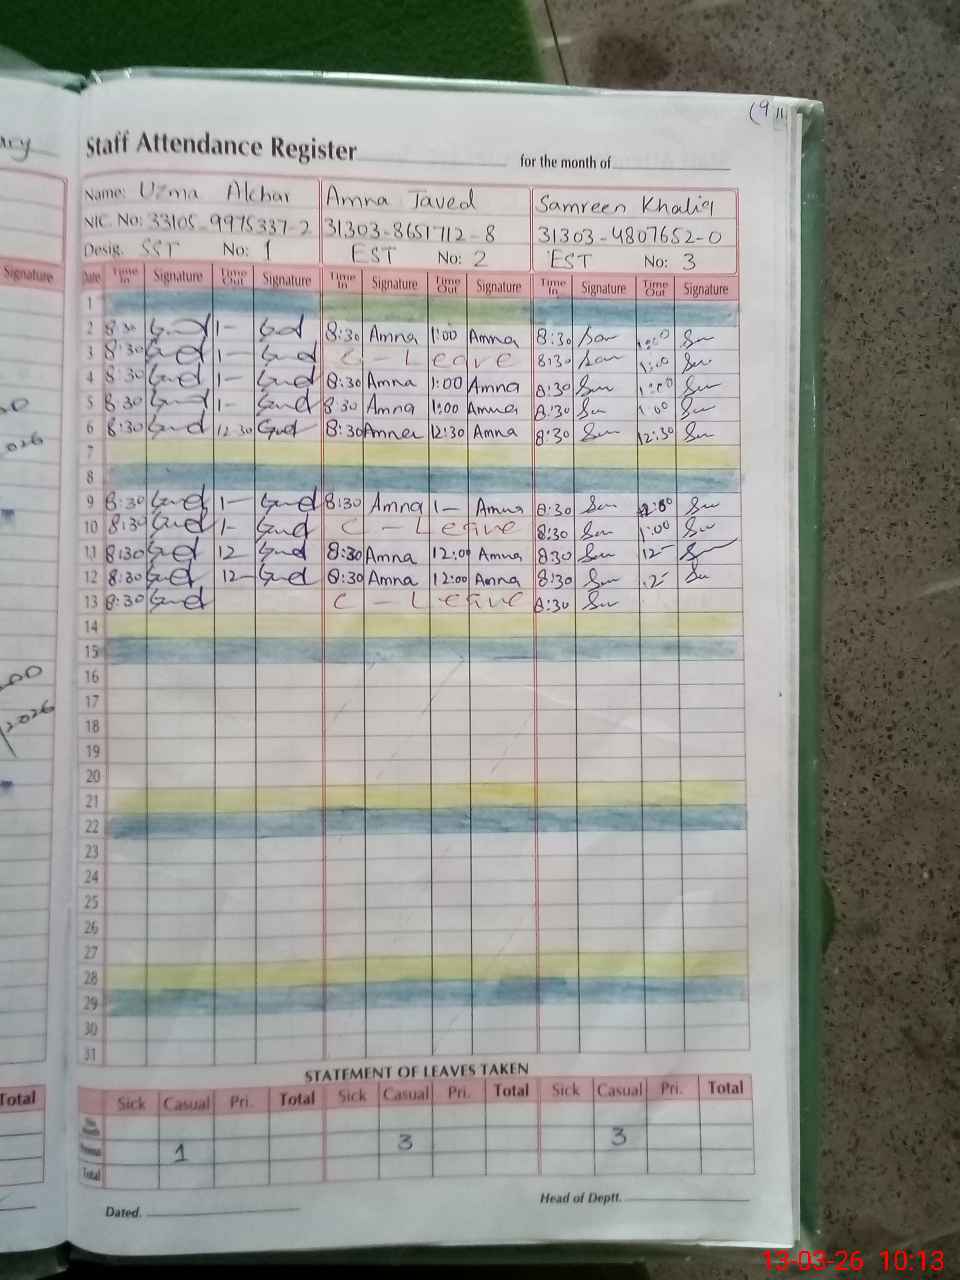 Staff Attendance Register for the month of
Name: Uzma Akhar Amna Javed Samreen Khaliq
NIC. No: 33105-9975337-2 31303-8651712-8 31303-4807652-0
Desig. SST No: 1 EST No: 2 EST No: 3
Signature
Date Time In Signature Time Out Signature Time In Signature Time Out Signature Time In Signature Time Out Signature
1
2 8:30 1- 8:30 Amna 1:00 Amna 8:30
3 8:30 1- C - Leave 8:30 1:00
4 8:30 1- 8:30 Amna 1:00 Amna 8:30 1:00
5 8:30 1- 8:30 Amna 1:00 Amna 8:30 1:00
6 8:30 12:30 8:30 Amna 12:30 Amna 8:30 12:30
7
8
9 8:30 1- 8:30 Amna 1- Amna 8:30
10 8:30 1- C - Leave 8:30 1:00
11 8:30 12 8:30 Amna 12:00 Amna 8:30 12-
12 8:30 12- 8:30 Amna 12:00 Amna 8:30 12-
13 8:30 C - Leave 8:30
14
15
16
17
18
19
20
21
22
23
24
25
26
27
28
29
30
31
STATEMENT OF LEAVES TAKEN
Total Sick Casual Pri. Total Sick Casual Pri. Total Sick Casual Pri. Total
1 3 3
Total
Dated. Head of Deptt.
13-03-26 10:13